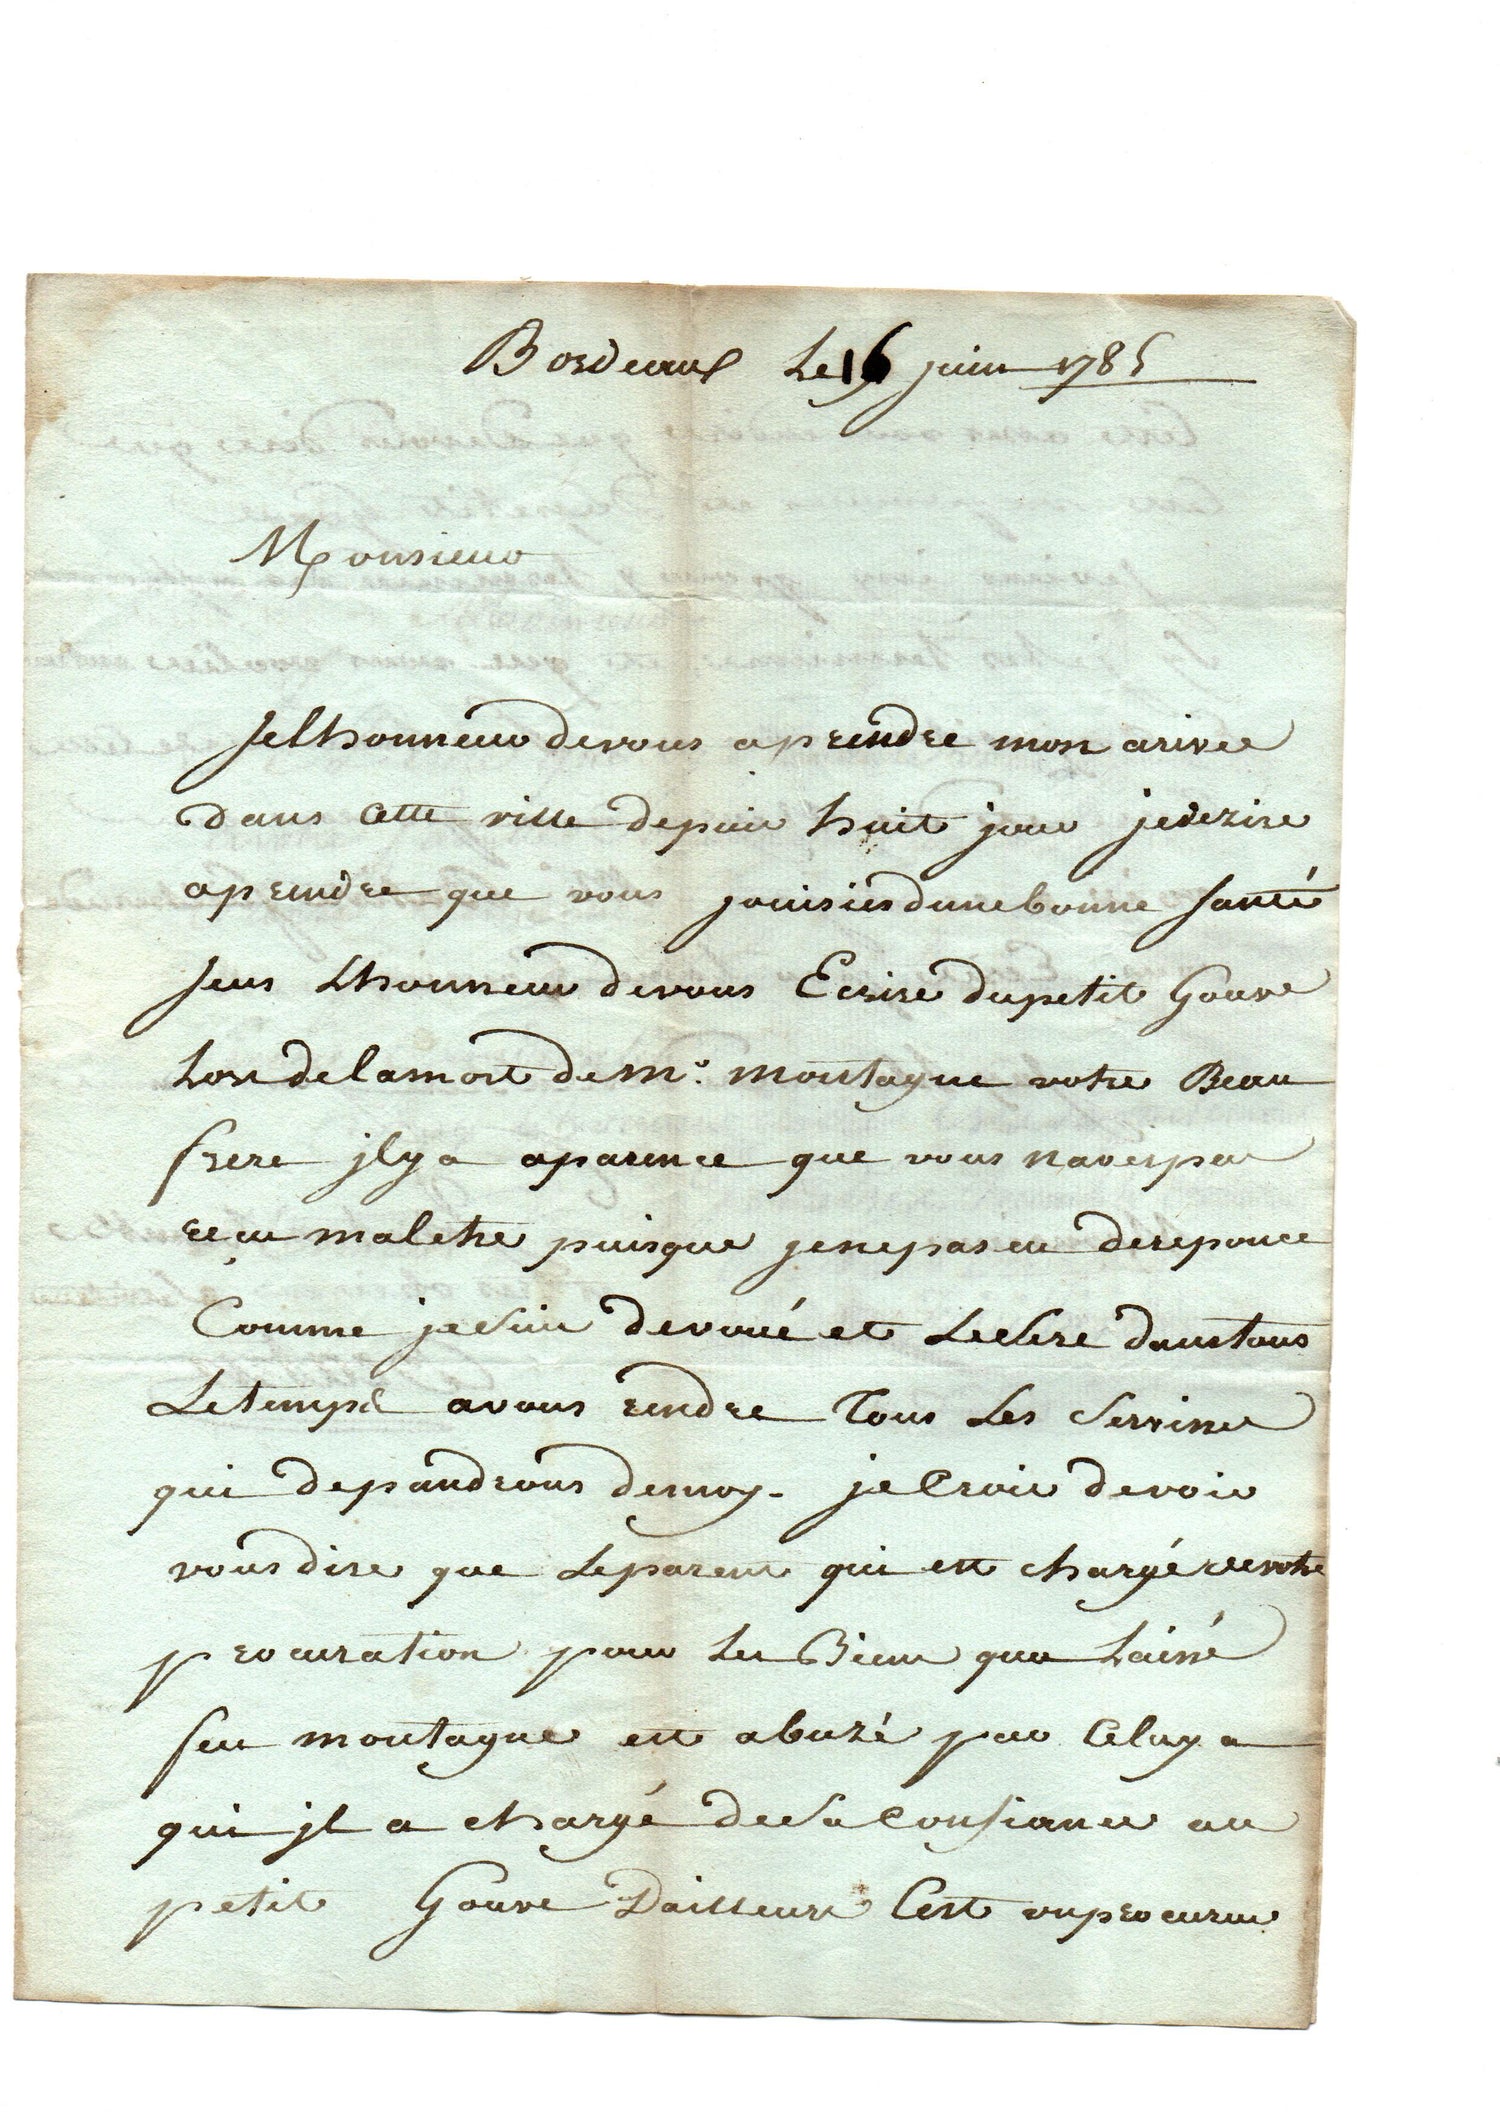 Bordeaux Le 16 juin 1785
Monsieur
Jelhonneur devous aprendre mon arivée
dans cette ville depuis huit jour jedezire
aprendre que vous jouisies dune bonne santé
Jeus Lhonneur devous Ecrire dupetit Goave
Lors delamort de Mr. montagne votre Beau
frere jlya aparence que vous naves pas
reçu maletre puisque jenepas eu dereponce
Comme jesuis devoué et Leseré dans tous
Letemps avous rendre Tous Les Servisse
qui depandrons demoy. jecrois devoir
vous dire que Leparent qui est chargé devotre
procuration pour Les Biens qua Lainé
feu montagne est abuzé par Celuy a
qui jl a chargé desaconfiance au
petit Goave Dailleurs Cest unprocureur